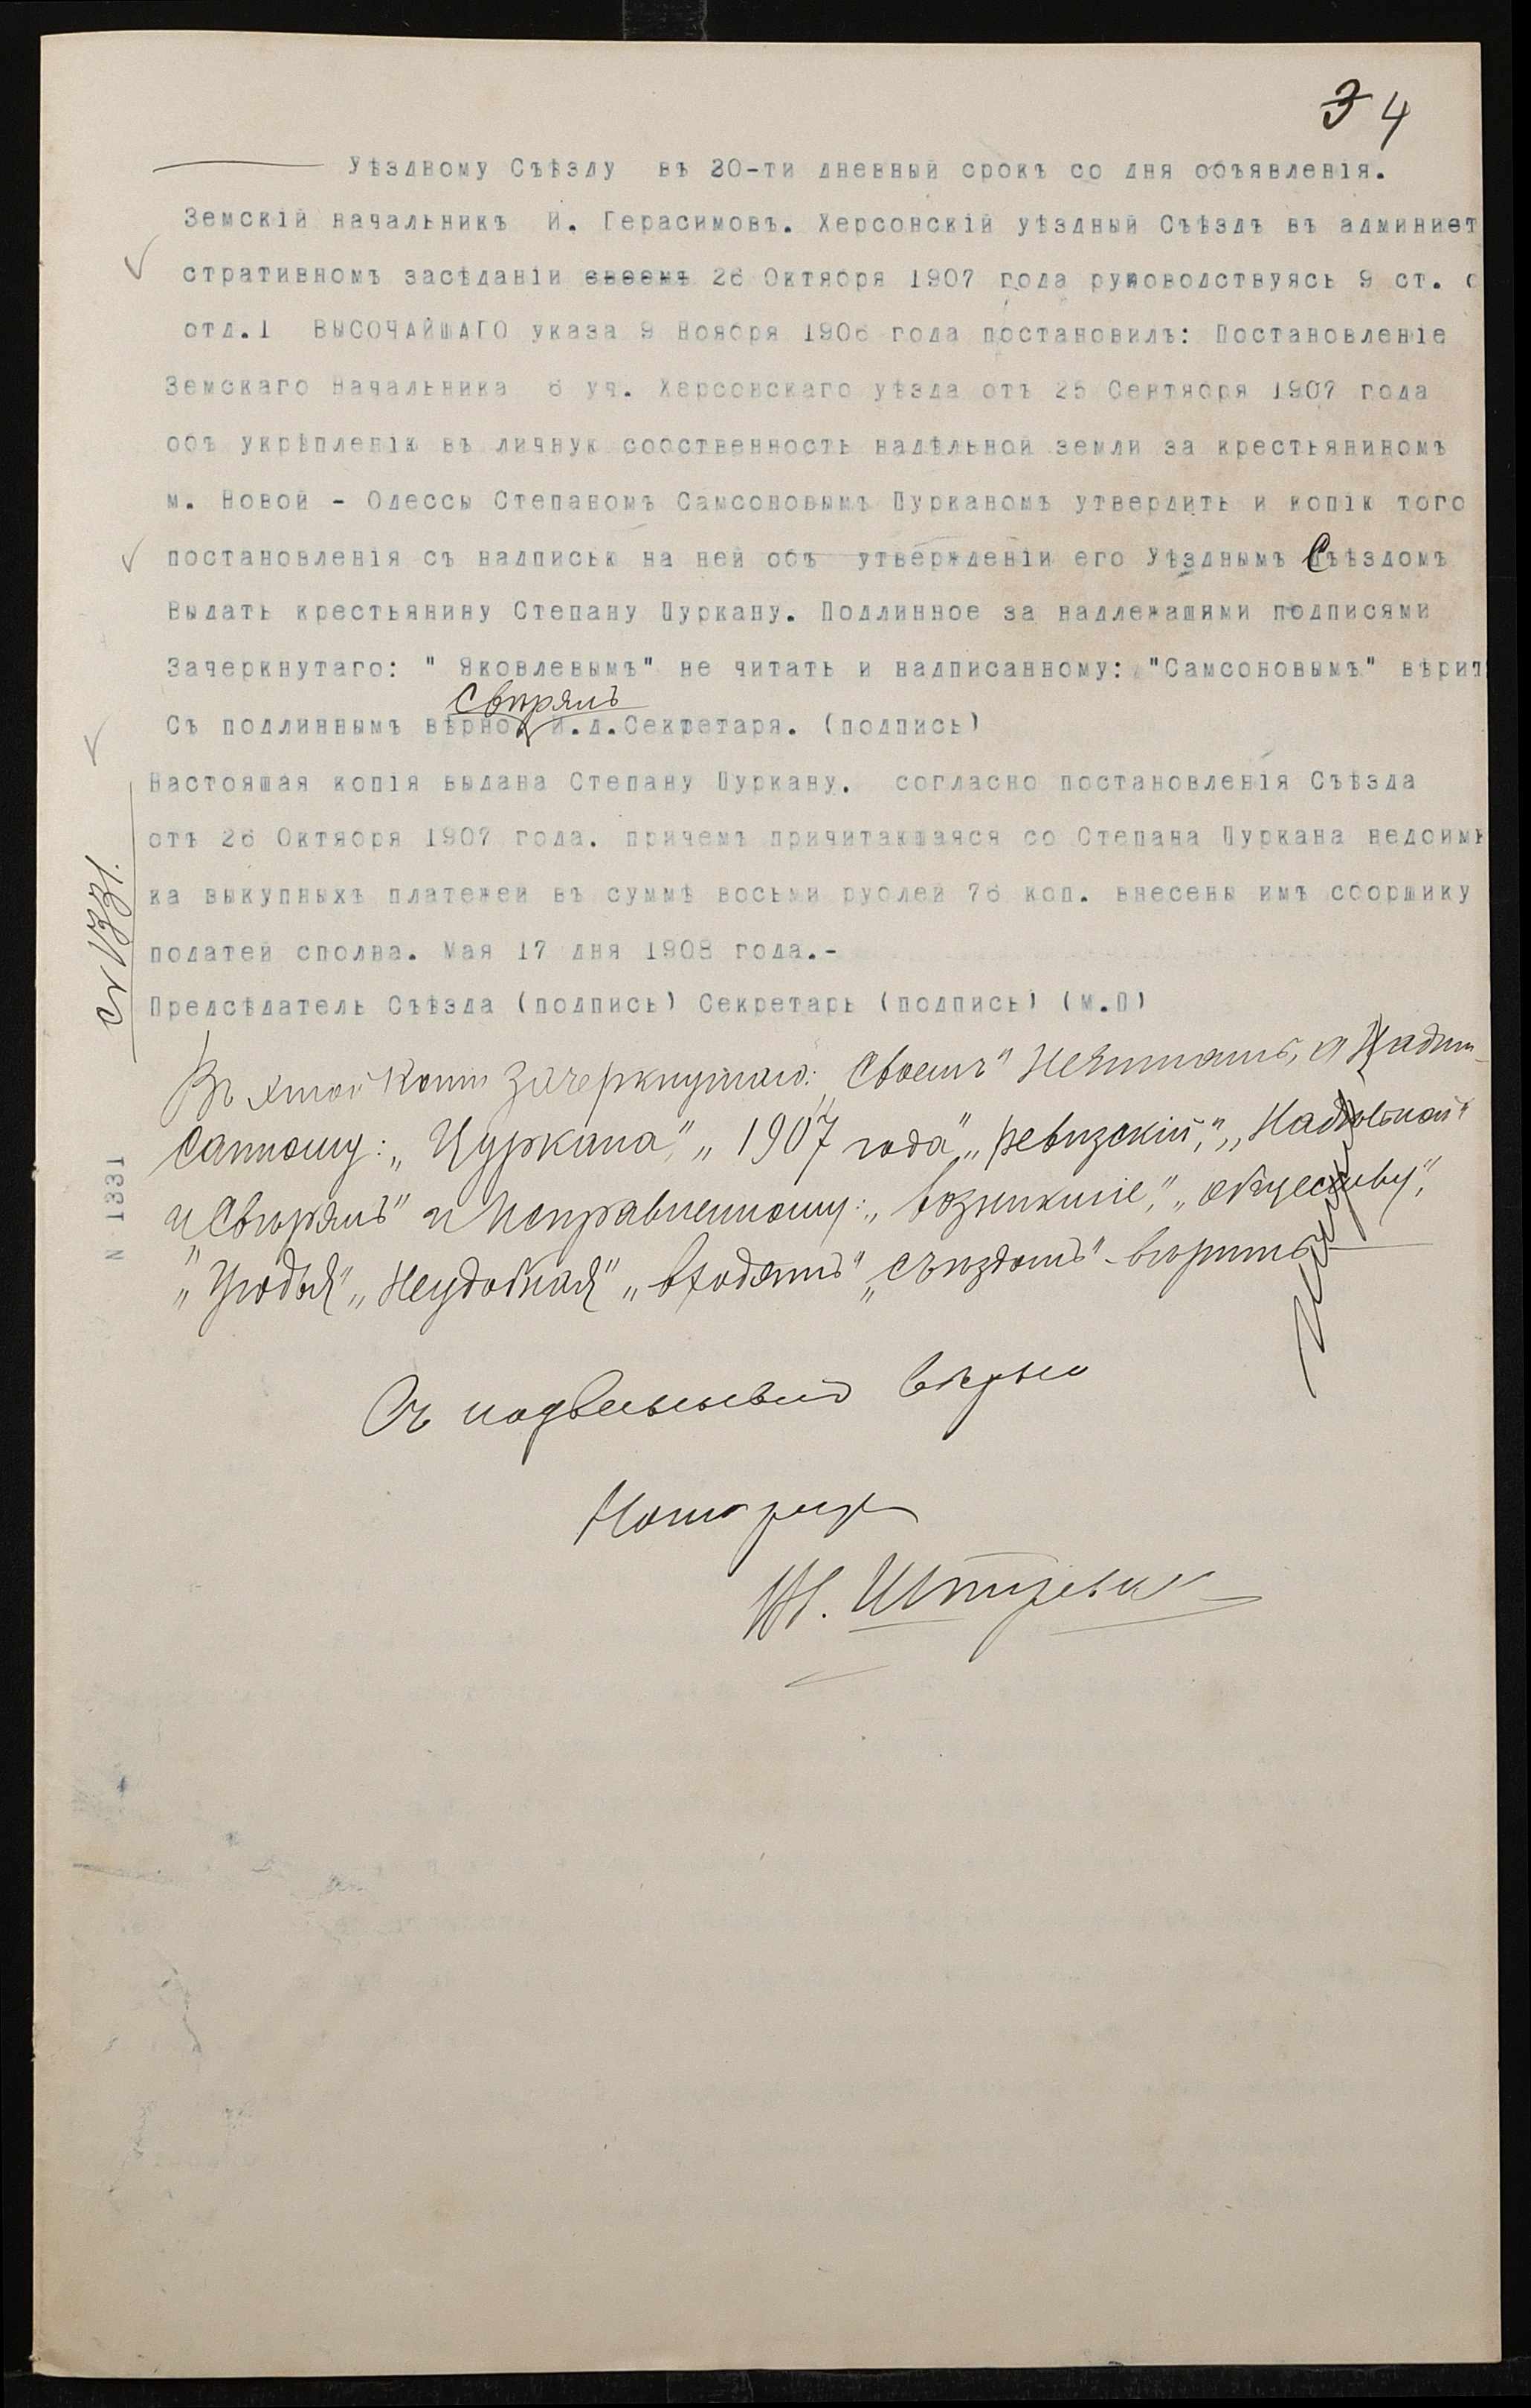 3 4
Уѣздному Съѣзду въ 30-ти дневный срокъ со дня объявленія.
Земскій начальникъ И. Герасимовъ. Херсонскій уѣздный Съѣздъ въ админист
стративномъ засѣданіи своемъ 26 Октября 1907 года руководствуясь 9 ст. о
отд.1 ВЫСОЧАЙШАГО указа 9 Ноября 1906 года постановилъ: Постановленіе
Земскаго Начальника 6 уч. Херсонскаго уѣзда отъ 25 Сентября 1907 года
объ укрѣпленію въ личную собственность надѣльной земли за крестьяниномъ
м. Новой - Одессы Степаномъ Самсоновымъ Цурканомъ утвердить и копію того
постановленія съ надписью на ней объ утвержденіи его Уѣзднымъ Съѣздомъ
Выдать крестьянину Степану Цуркану. Подлинное за надлежащими подписями
Зачеркнутаго: " Яковлевымъ" не читать и надписанному: "Самсоновымъ" вѣрит
Свѣрялъ
Съ подлиннымъ вѣрно И.д.Секретаря. (подпись)
Настоящая копія выдана Степану Цуркану. согласно постановленія Съѣзда
отъ 26 Октября 1907 года. причемъ причитающаяся со Степана Цуркана недоим
ка выкупныхъ платежей въ суммѣ восьми рублей 76 коп. внесены имъ сборщику
податей сполна. Мая 17 дня 1908 года.-
Предсѣдатель Съѣзда (подпись) Секретарь (подпись) (М.П)
Въ этой копіи зачеркнутаго: „своемъ" не читать, а надпи-
санному: „Цуркана", „1907 года" „ревизскій", „Надѣльной"
и „Свѣрялъ" и исправленному: „возникшіе", „обществу",
„Угодья" „Неудобная" „входятъ" „съѣздомъ" - вѣрить
Съ подлиннымъ вѣрно
Нотаріусъ
N 1331